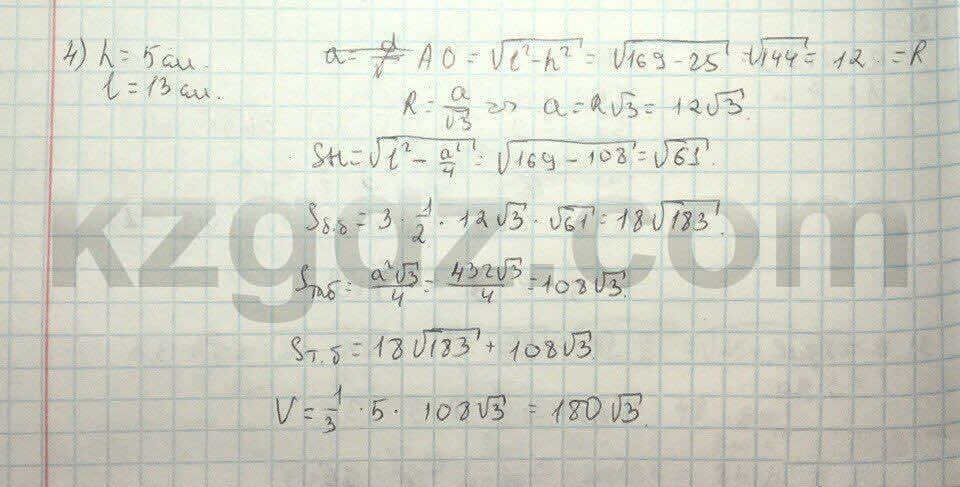 4) h = 5 см.
l = 13 см.
AO = √(l² - h²) = √(169 - 25) = √144 = 12 = R
R = a/√3 => a = R√3 = 12√3.
SH = √(l² - a²/4) = √(169 - 108) = √61.
Sб.б = 3 · 1/2 · 12√3 · √61 = 18√183.
Sтаб = a²√3/4 = 432√3/4 = 108√3.
Sт.б = 18√183 + 108√3
V = 1/3 · 5 · 108√3 = 180√3.
kzgdz.com